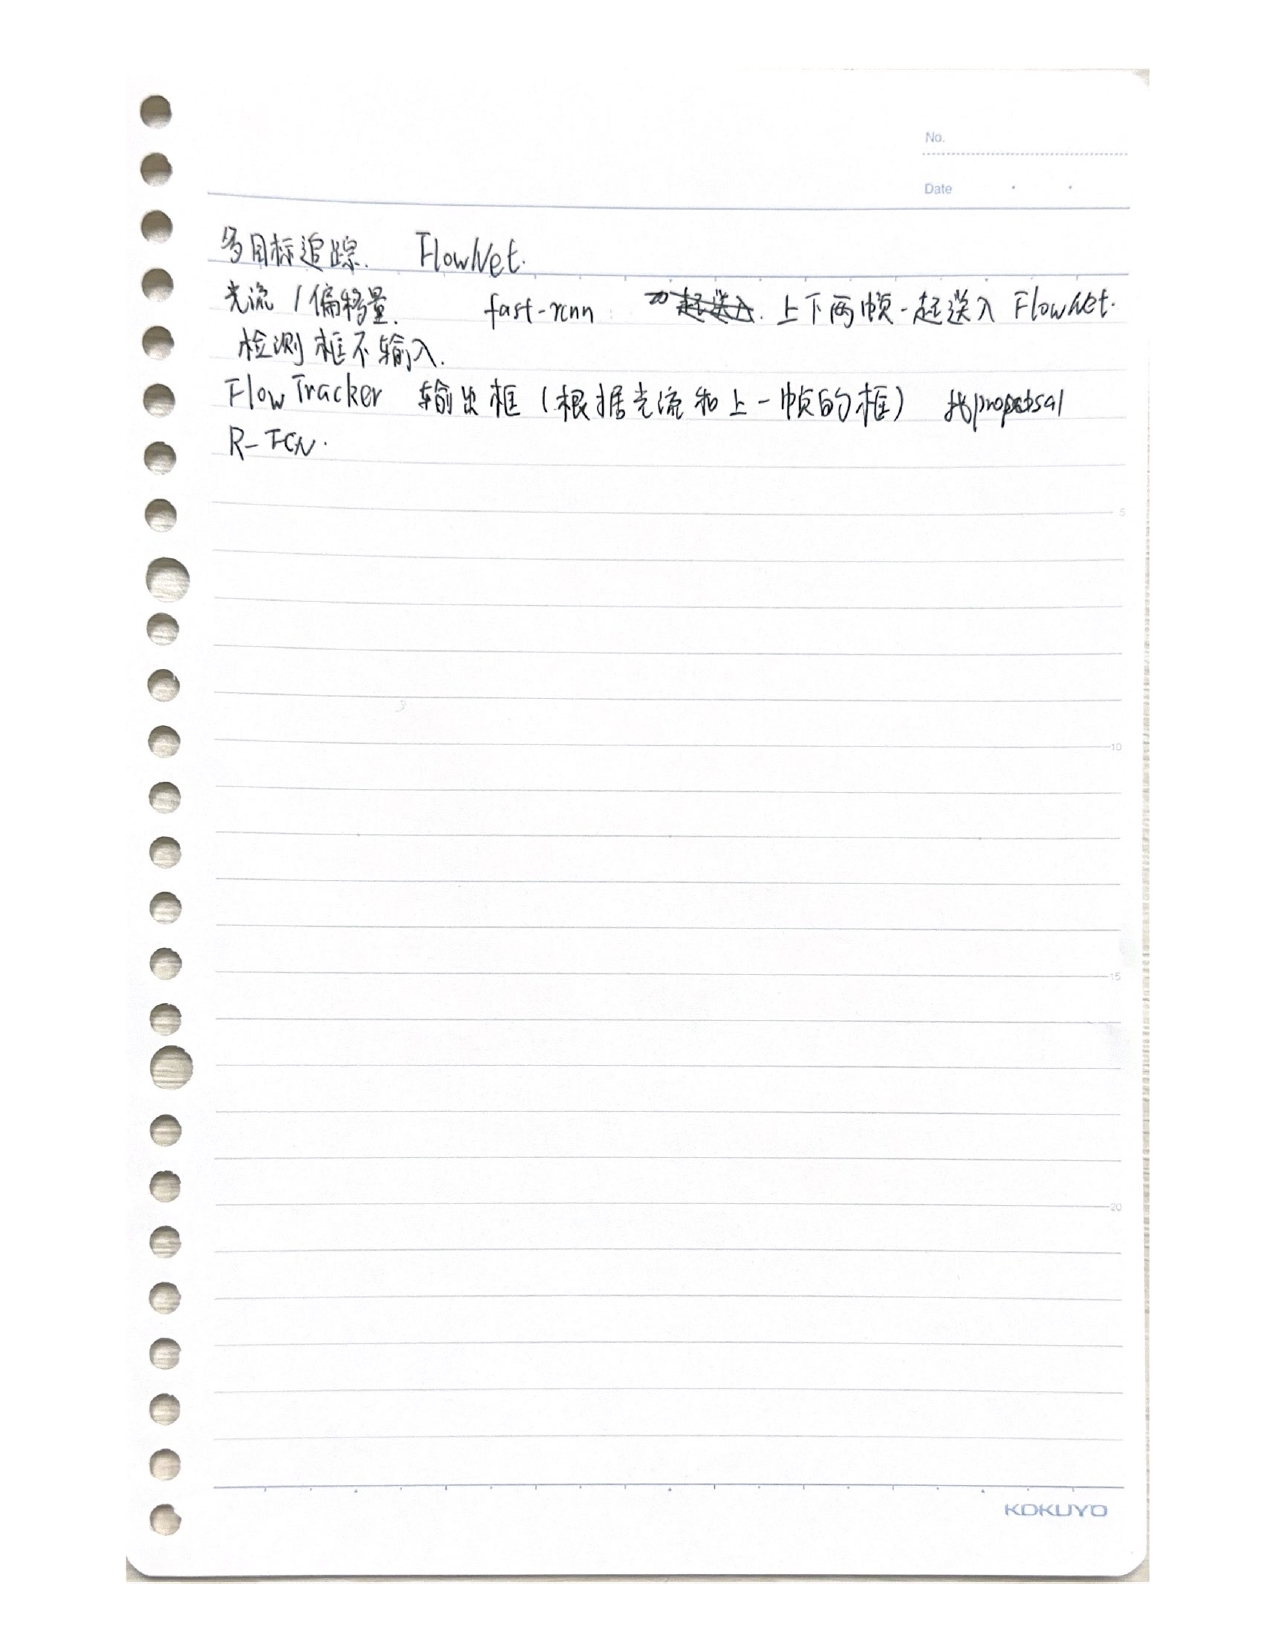 No.
Date
多目标追踪. FlowNet.
光流 / 偏移量. fast-rcnn 上下两帧一起送入 FlowNet.
检测框不输入.
Flow Tracker 输出框 (根据光流和上一帧的框) 找proposal
R-FCN.
5
10
15
20
KOKUYO